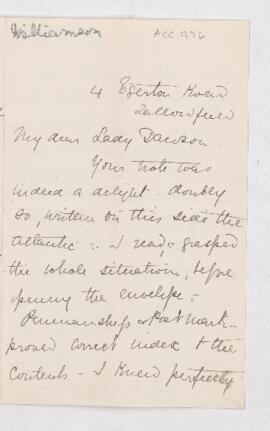 Williamson
ACC. 976
4 Egerton Road
Fallowfield
My dear Lady Dawson.
Your note was
indeed a delight - doubly
so, written on this side the
Atlantic :- I read, & grasped
the whole situation, before
opening the envelope.-
Penmanship & Postmark
proved correct index to the
contents - I knew perfectly